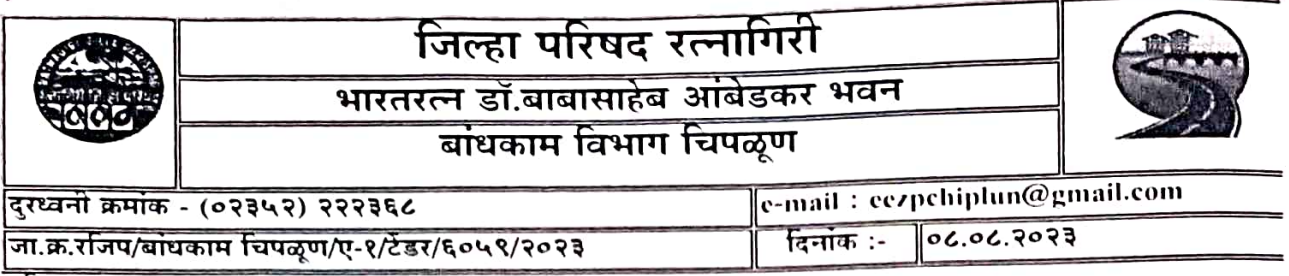 जिल्हा परिषद रत्नागिरी
भारतरत्न डॉ.बाबासाहेब आंबेडकर भवन
बांधकाम विभाग चिपळूण
दुरध्वनी क्रमांक - (०२३५२) २२२३६८
e-mail : eezpchiplun@gmail.com
जा.क्र.रजिप/बांधकाम चिपळूण/ए-१/टेंडर/६०५९/२०२३
दिनांक :- ०८.०८.२०२३